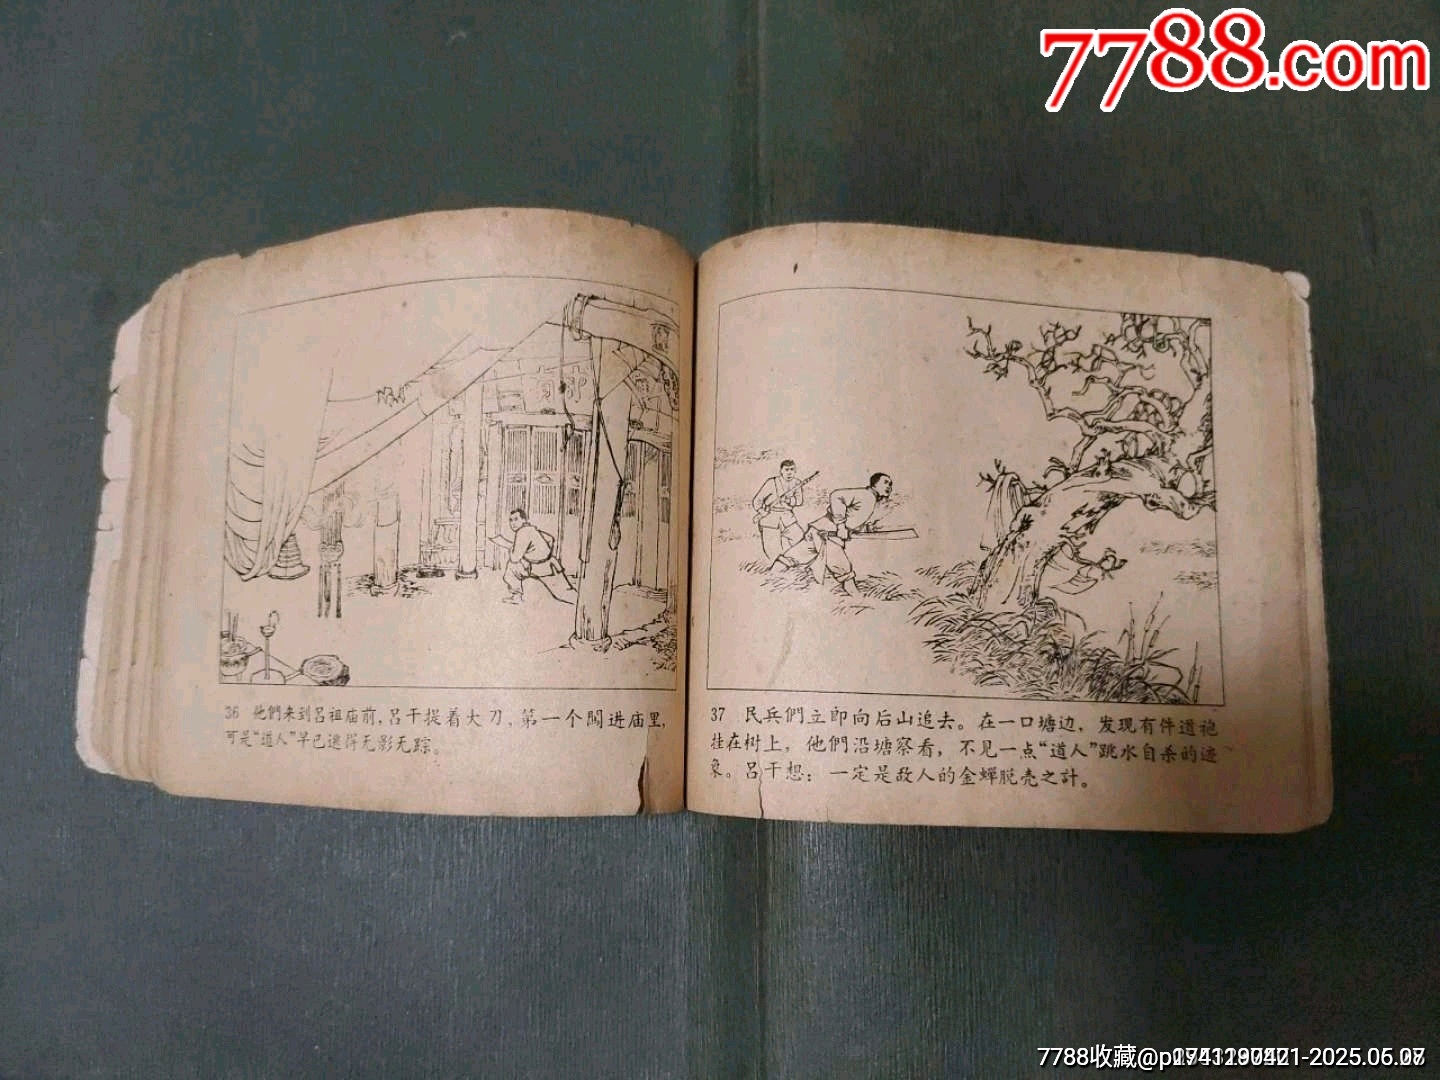 7788.com
36 他們来到吕祖庙前，吕干提着大刀、第一个闖进庙里，
可是“道人”早已逃得无影无踪。
37 民兵們立即向后山追去。在一口塘边，发现有件道袍
挂在树上，他們沿塘察看，不见一点“道人”跳水自杀的迹
象。吕干想：一定是敌人的金蟬脱壳之計。
7788收藏@p